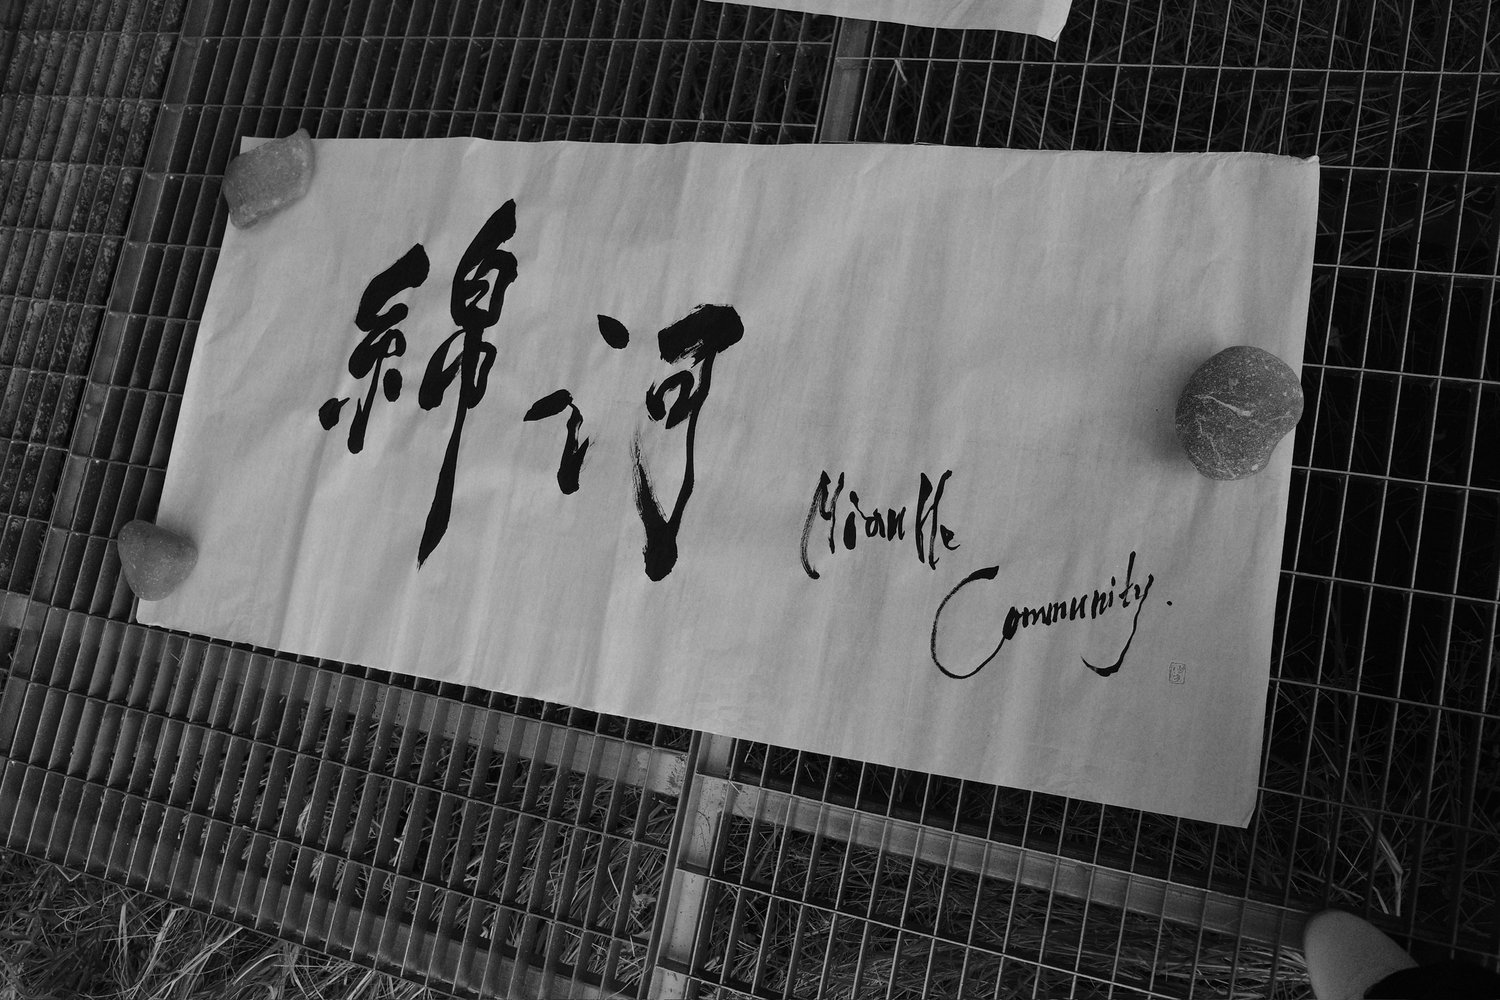 綿河
MianHe
Community.